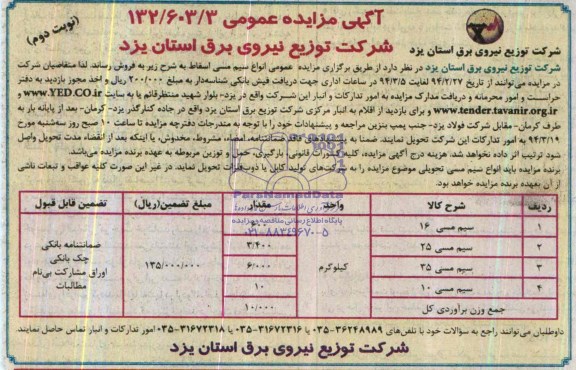 آگهی مزایده عمومی ۱۳۲/۶۰۳/۳
(نوبت دوم)
شرکت توزیع نیروی برق استان یزد
شرکت توزیع نیروی برق استان یزد
شرکت توزیع نیروی برق استان یزد در نظر دارد از طریق برگزاری مزایده عمومی انواع سیم مسی اسقاط به شرح زیر به فروش رساند. لذا متقاضیان شرکت
در مزایده می‌توانند از تاریخ ۹۴/۲/۲۷ لغایت ۹۴/۳/۵ در ساعات اداری جهت دریافت فیش بانکی شناسه‌دار به مبلغ ۲۰۰/۰۰۰ ریال و اخذ مجوز بازدید به دفتر
حراست و امور محرمانه و دریافت مدارک مزایده به امور تدارکات و انبار این شرکت واقع در یزد- بلوار شهید منتظرقائم یا به سایت www.YED.CO.ir و
www.tender.tavanir.org.ir و برای بازدید از اقلام به انبار مرکزی شرکت توزیع برق استان یزد واقع در جاده کنارگذر یزد- کرمان- بعد از پایانه بار به
طرف کرمان- مقابل شرکت فولاد یزد- جنب پمپ بنزین مراجعه و پیشنهادات خود را با توجه به مندرجات دفترچه مزایده تا ساعت ۱۰ صبح روز سه‌شنبه مورخ
۹۴/۳/۱۹ به امور تدارکات این شرکت تحویل نمایند. ضمنا به پیشنهادهای فاقد ضمانتنامه، امضاء، مشروط، مخدوش، یا اینکه بعد از انقضاء مدت تحویل واصل
شود ترتیب اثر داده نخواهد شد. هزینه درج آگهی مزایده، کلیه کسورات قانونی، بارگیری، حمل و توزین مربوطه به عهده برنده مزایده می‌باشد.
برنده مزایده باید انواع سیم مسی تحویلی موضوع مزایده را به شرکت‌های تولید کابل یا ذوب فلزات تحویل نماید. در غیر این صورت کلیه عواقب و تبعات ناشی
از آن بعهده برنده مزایده خواهد بود.
ParsNamadData
پایگاه اطلاع رسانی مناقصه و مزایده
۰۲۱-۸۸۳۴۹۶۷۰-۵
ردیف شرح کالا واحد مقدار مبلغ تضمین(ریال) تضمین قابل قبول
۱ سیم مسی ۱۶ کیلوگرم ۶۰۰ ۱۳۵/۰۰۰/۰۰۰ ضمانتنامه بانکی
۲ سیم مسی ۲۵ ۳/۴۰۰ چک بانکی
۳ سیم مسی ۳۵ ۶/۰۰۰ اوراق مشارکت بی‌نام
۴ سیم مسی ۱۰ ۱۰ مطالبات
جمع وزن برآوردی کل ۱۰/۰۰۰
داوطلبان می‌توانند راجع به سؤالات خود با تلفن‌های ۰۳۵-۳۶۲۴۸۹۸۹ یا ۰۳۵-۳۱۶۷۲۳۱۶ یا ۰۳۵-۳۱۶۷۲۳۱۸ امور تدارکات و انبار تماس حاصل نمایند.
شرکت توزیع نیروی برق استان یزد